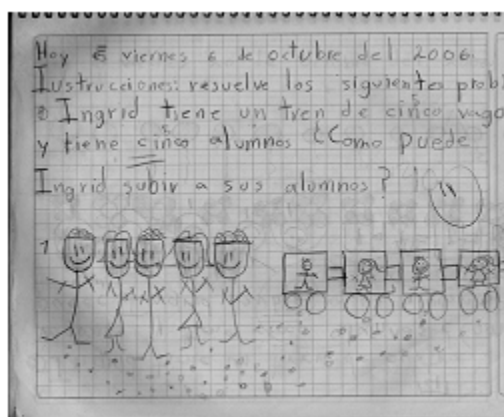 Hoy 6 viernes 6 de octubre del 2006
Iustrucciones: resuelve los siguientes prob
Ingrid tiene un tren de cinco vago
y tiene cinco alumnos ¿Como puede
Ingrid subir a sus alumnos?
1